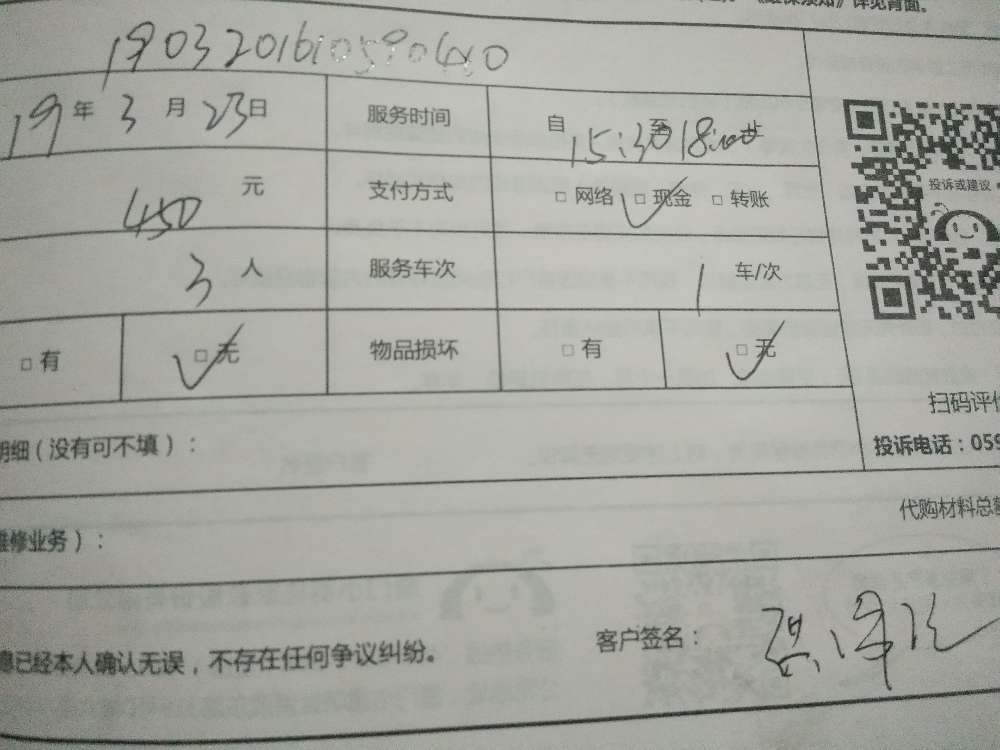 详见背面。
1903201610590440
19年3月23日 服务时间 自15:30至18:00止
投诉或建议
450元 支付方式 □ 网络 □ 现金 □ 转账
3人 服务车次 1车/次
□ 有 □ 无 物品损坏 □ 有 □ 无
扫码评价
明细（没有可不填）：
投诉电话：059
代购材料总额
维修业务）：
客户签名：
已经本人确认无误，不存在任何争议纠纷。